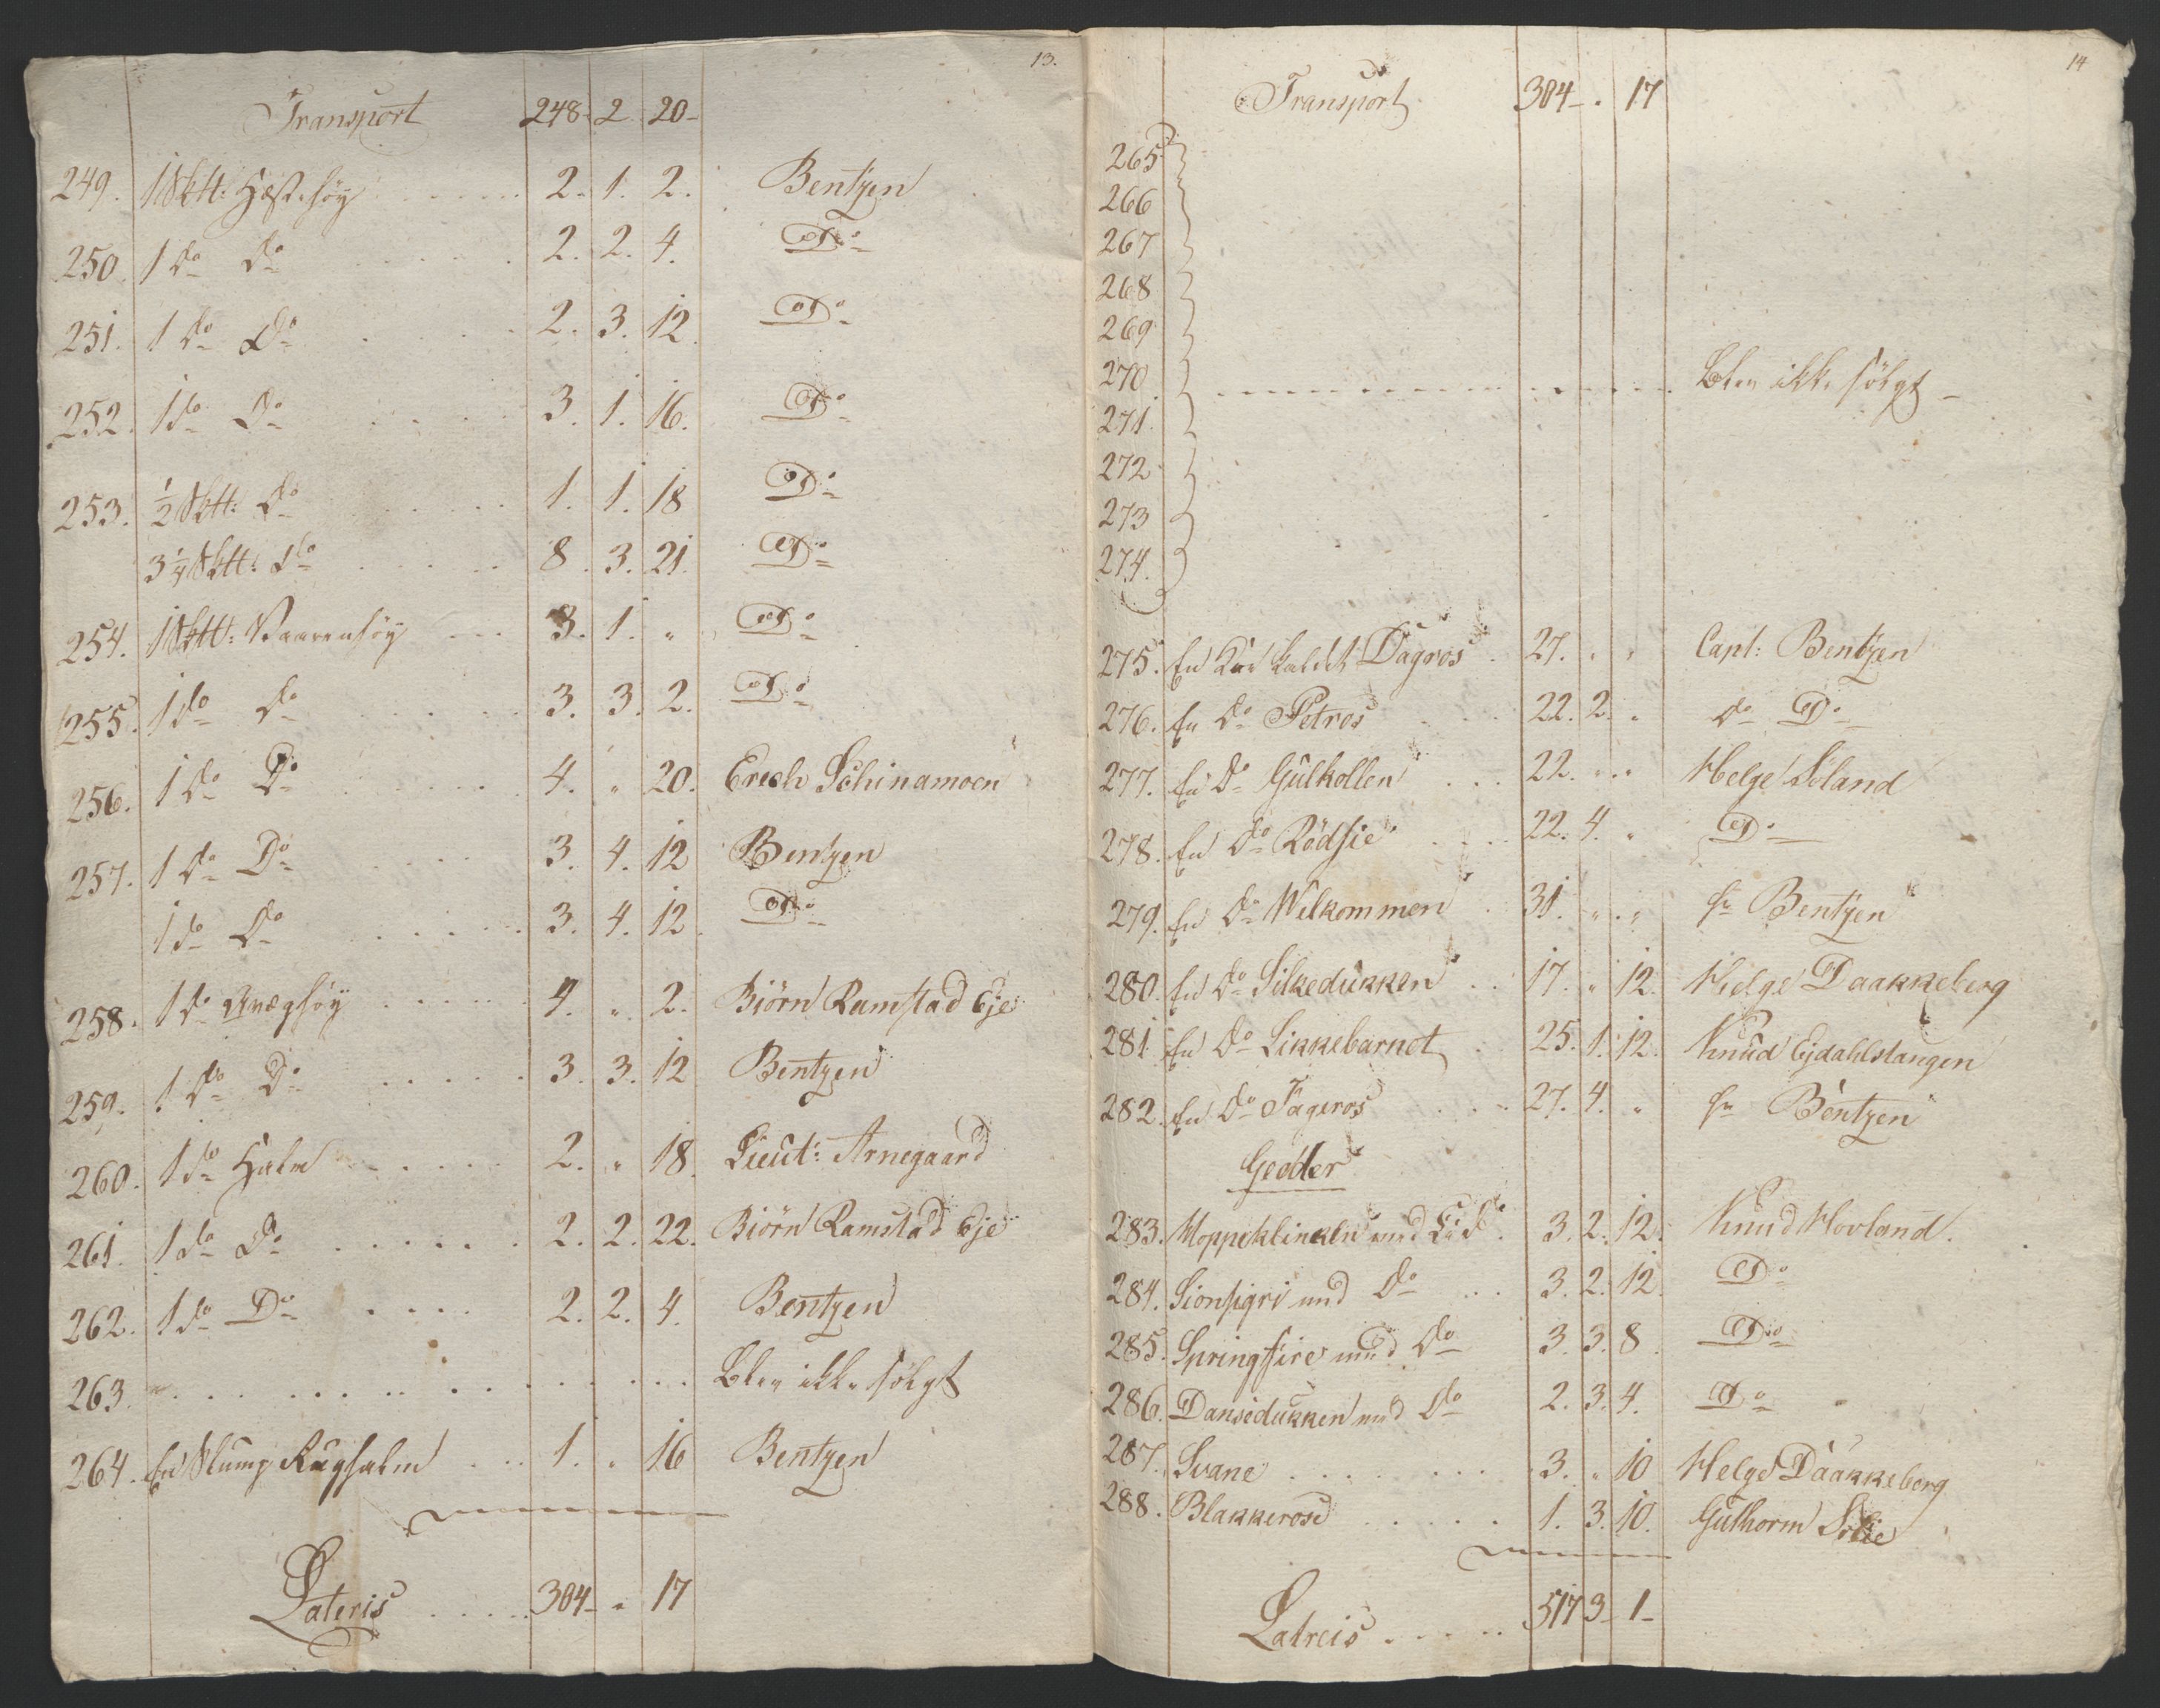 13.
Transport 248 - 2 20 -
249. 1 Sktt: Hestehöy . . . . . 2. 1. 2. Bentzen
250. 1 do do . . . . . 2. 2. 4. Do
251. 1 do Do . . . 2. 3. 12. Do
252. 1 do Do . . . 3. 1. 16. Do
253. ½ Sktt: Do . . . . 1. 1. 18 Do
3¼ Sktt: Do . . . . . 8. 3. 21. Do
254. 1 Sktt: . . . 3. 1. " Do
255. 1 do do . . . . . 3. 3. 2. Do
256. 1 do Do . . . . . 4. " 20. Erich Schinamoen
257. 1 do Do . . . . 3. 4. 12 Bentzen
1 do Do . . . . . 3. 4. 12. Do
258. 1 do . . . . . 4. " 2. Biörn Ramstad Eje
259. 1 do Do . . . . . 3. 3. 12 Bentzen
260. 1 do Halm . . . . . 2. " 18. Lieut: Arnegaard
261. 1 do Do . . . . . . 2. 2. 22. Biörn Ramstad Eje
262. 1 do Do . . . . 2. 2. 4. Bentzen
263. . . . . . . . . . . . . Blev ikke sölgt
264. En Slump Rughalm . . . 1. " 16 Bentzen
Lateris . . . . . 304 - " 17
14
Transport 304 - . 17
265
266
267
268
269
270 . . . . . . . . . . . . Blev ikke sölgt -
271.
272
273
274.
275. En Kue kaldet Dagros . 27. " " Capt: Bentzen
276. En Do Petros . . . 22. 2. " do Do
277. En Do Gulkollen . . . 22. " " Helge Söland
278. En Do Rödsie . . . . 22. 4. " Do
279. En Do Wilkommen . 31. " " hr Bentzen
280. En Do Silkedukken . . 17. " 12. Helge Daakkeberg
281. En Do Likkebarnet . 25. 1. 12. Knud Ejdahlstangen
282. En Do Fageros . . . 27. 4. " hr Bentzen
Gedder
283. Moppeklinken med Kid . 3. 2. 12. Knud Hovland.
284. Sionsigri med Do . . . 3. 2. 12. Do
285. Springfire med Do 3. 3. 8. Do
286. Dansedukken med Do 2. 3. 4. Do
287. Svane . . . . . . . 3. " 10 Helge Daakkeberg
288. Blakkerose . . . . . 1. 3. 10. Guthorm Solie
Latreis . . . . . 517 3 - 1 -